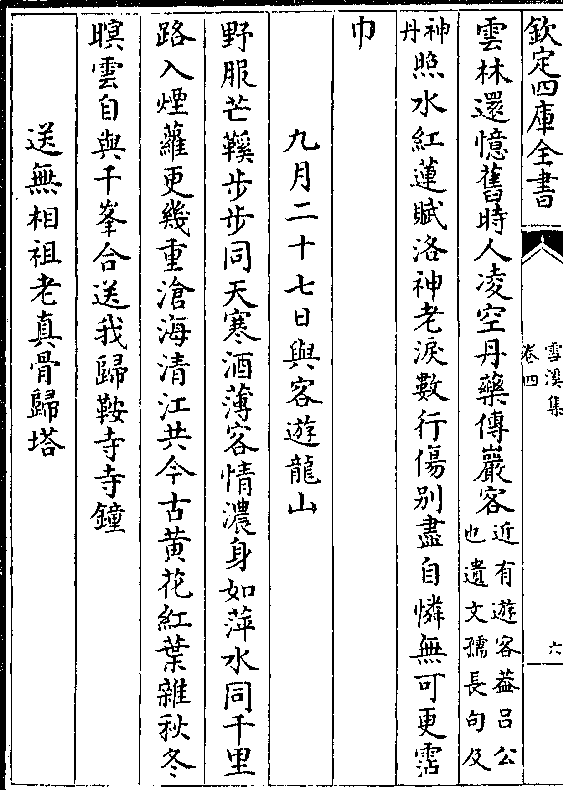 欽定四庫全書
雪溪集
卷四
六
雲林還憶舊時人凌空丹藥傳巖客近有遊客葢吕公
也遺文孺長句及
神丹照水紅蓮賦洛神老淚數行傷別盡自憐無可更霑
巾
九月二十七日與客遊龍山
野服芒鞵步步同天寒酒薄客情濃身如萍水同千里
路入煙蘿更幾重滄海清江共今古黄花紅葉雜秋冬
暝雲自與千峯合送我歸鞍寺寺鐘
送無相祖老真骨歸塔